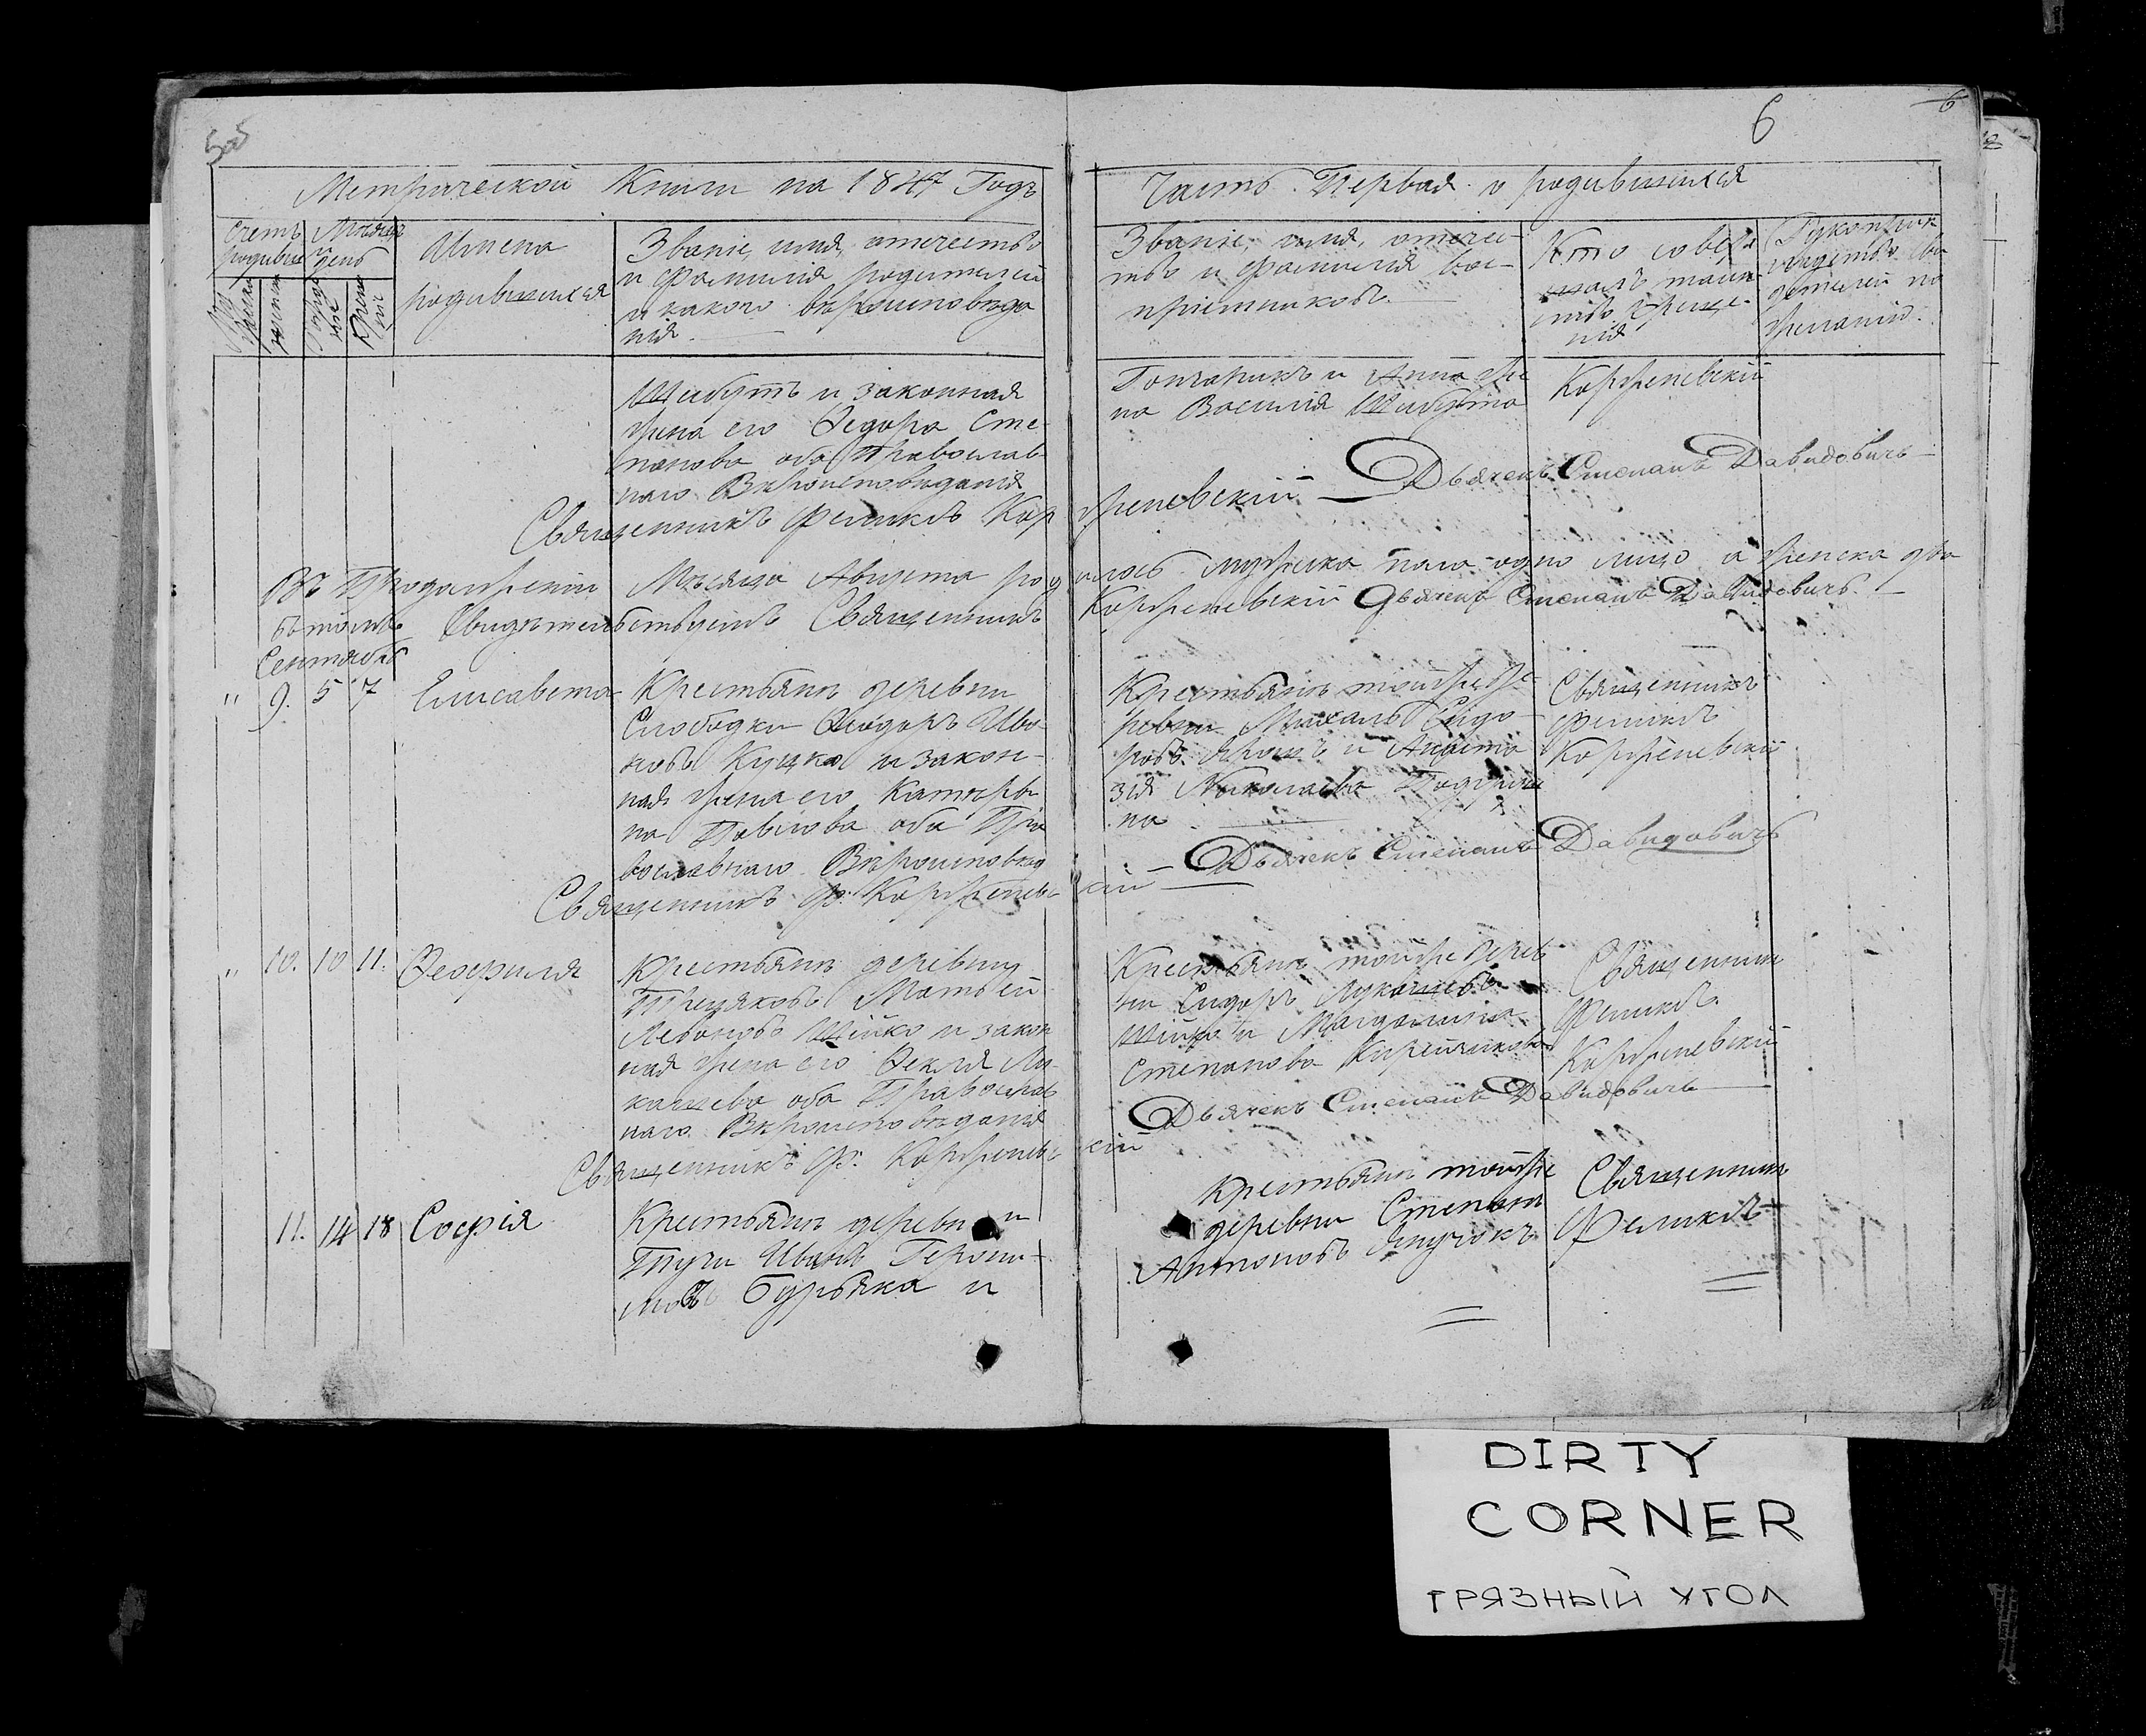 505
6
6
Метрической Книги на 1847 Годъ
Часть Первая о родившихся
Счетъ родивш
Мѣсяцъ и день
Имена
родившихся
Званіе, имя, отчество
и фамилія родителей
и какого вѣроисповѣда
нія.
Званіе, имя, отчес-
тво и фамилія вос-
пріемниковъ.
Кто совер
шалъ таин
ство креще-
нія
Рукоприк
свидетел по
желанію.
Шибутъ и законная
жена его Ѳедора Сте-
панова оба Православ-
наго Вѣроисповѣданія
Гончарикъ и Анна же
на Василія Шибута
Корженевскій
Священникъ Феликсъ Корженевскій
Дьячекъ Степанъ Давидовичъ
Въ Продолженіи Мѣсяца Августа родилось мужеска пала одно лицо а женска два
Свидѣтельствуемъ Священникъ Корженевскій Дьячекъ Степанъ Давидовичъ.
Сентябрь
" 9. 5 7 Елисавета
Крестьянъ деревни
Слободки Ѳеодоръ Ива-
новъ Куцко и закон-
ная жена его Катери-
на Павлова оба Пра
вославнаго Вѣроисповѣд
Крестьянъ тойже де-
ревни Михалъ Сидо-
ровъ и Анаста
зія Николаева
на
Священникъ
Феликсъ
Корженевскій
Священникъ Ф. Корженевскій
Дьячекъ Степанъ Давидовичъ
" 10. 10 11. Ѳеофиля
Крестьянъ деревни
Трецяковъ Матвей
Левоновъ Шійко и закон
ная жена его Ѳекля Лу-
кашева оба Православ
наго Вѣроисповѣданія
Крестьянъ тойже дерев
ни Сидоръ Лукашевъ
Шійко и Магдалина
Степанова
Священникъ
Феликсъ
Корженевскій
Священникъ Ф. Корженевскій
Дьячекъ Степанъ Давидовичъ
11. 14 18 Софія
Крестьянъ деревни
Тучи Иванъ Герони-
мовъ Бурбяка и
Крестьянъ тойже
деревни Степанъ
Антоновъ
Священникъ
Феликсъ
DIRTY
CORNER
ГРЯЗНЫЙ УГОЛ